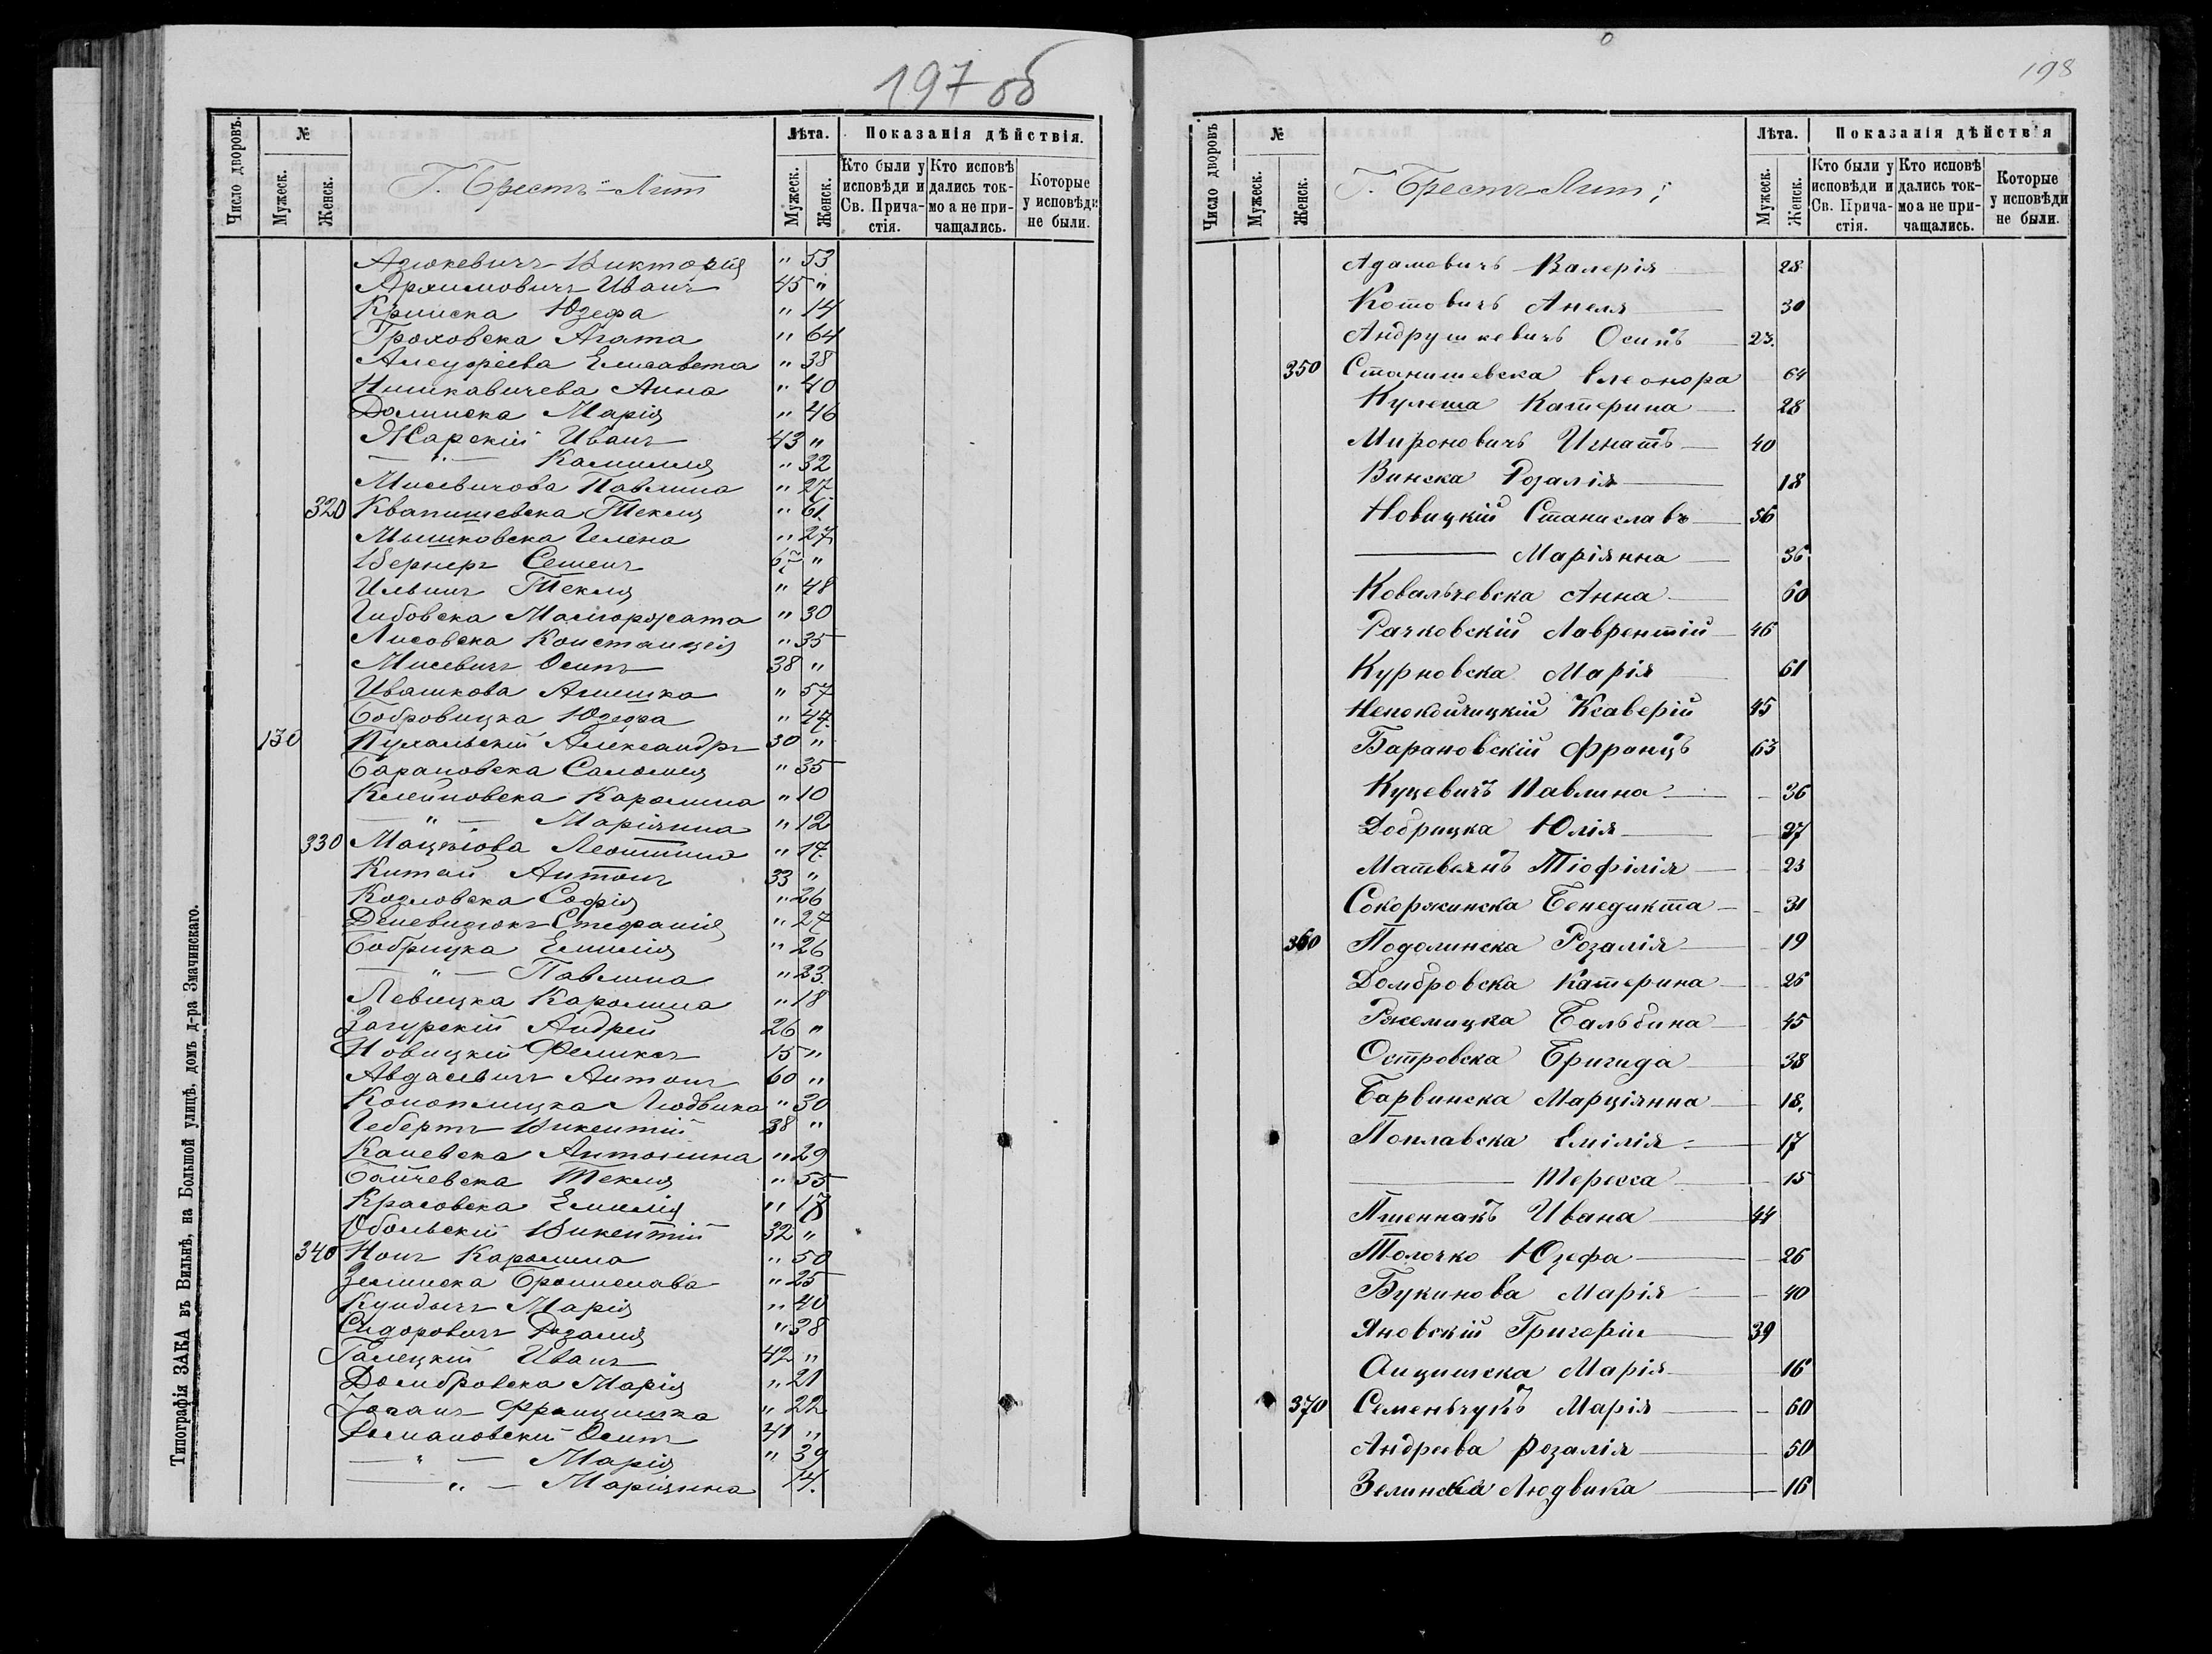 197 об
Число дворовъ.
№
Мужеск.
Женск.
Г. Брестъ-Лит
Лѣта.
Мужеск.
Женск.
Показанія дѣйствія.
Кто были у исповѣди и Св. Прича-стія.
Кто исповѣ дались ток-мо а не при-чащались.
Которые у исповѣди не были.
Азюкевичъ Викторія " 53
Архимовичъ Иванъ 45 "
Юзефа " 14
Гроховска Агата " 64
Елисавета " 38
Анна " 40
Долинска Марія " 46
Жарскій Иванъ 43 "
— " — Камиллія " 32
Мисевичова Павлина " 27
320 Квапишевска Текля " 61.
Мышковска Гелена " 27
Вернеръ Семенъ 67 "
Ильинъ Текля " 48
Гибовска Малгоржата " 30
Лисовска Констанція " 35
Мисевичъ Осипъ 38 "
Ивашкова " 57
Бобровицка Юзефа " 47.
130 Пухальскій Александръ 30 "
Барановска Саломея " 35
Клейновска Каролина " 10
— " — Маріянна " 12
330 " 17.
Китай Антонъ 33 "
Козловска Софія " 26
Стефанія " 27
Бобрицка Емилія " 26
— " — Павлина " 23.
Левицка Каролина " 18
Загурскій Андрей 26 "
Новицкій Феликсъ 15 "
Антонъ 60 "
Коноплицка Людвика " 30
Гебертъ Викентій 38 "
Каневска Антонина " 29
Байчевска Текля " 55
Красовска Емилія " 17
Обольскій Викентій 32 "
340 Нонъ Каролина " 50
Зелинска Бронислава " 25
Марія " 40
Сидоровичъ Розалія " 38
Галецкій Иванъ 42 "
Домбровска Марія " 21
Францишка " 22
Романовскій Осипъ 41 "
— " — Марія " 39
— " — Маріянна 14.
Типографія ЗАКА въ Вильнѣ, на Большой улицѣ, домъ д-ра Змачинскаго.
198
Число дворовъ
№
Мужеск.
Женск.
Г. Брестъ Лит;
Лѣта.
Мужеск.
Женск.
Показанія дѣйств'я
Кто были у исповѣди и Св. Прича-стія.
Кто исповѣ дались ток-мо а не при-чащались.
Которые у исповѣди не были.
Адамовичъ Валерія 28
Котовичъ Анеля 30
Андрушкевичъ Осипъ 23.
350 Станишевска Елеонора 64
Кулеша Катерина 28
Мироновичъ Игнатъ 40
Винска Розалія 18
Новицкій Станиславъ 56
— Маріянна 36
Ковальчевска Анна 60
Рачковскій Лаврентій 46
Курновска Марія 61
Непокойчицкій Ксаверій 45
Барановскій Францъ 63
Куцевичъ Павлина 36
Добрицка Юлія 27
Матвеянъ Тіофілія 23
Сокоржинска Бенедикта 31
360 Подолинска Розалія 19
Домбровска Катерина 26
Ржемицка Бальбина 45
Островска Бригида 38
Барвинска Марціянна 18.
Поплавска Емілія 17
— Тересса 15
Пшеннакъ Ивана 44
Толочко Юзефа 26
Букинова Марія 40
Яновскій Григорій 39
Марія 16
370 Семеньчукъ Марія 60
Андреева Розалія 50
Зелинска Людвика 16